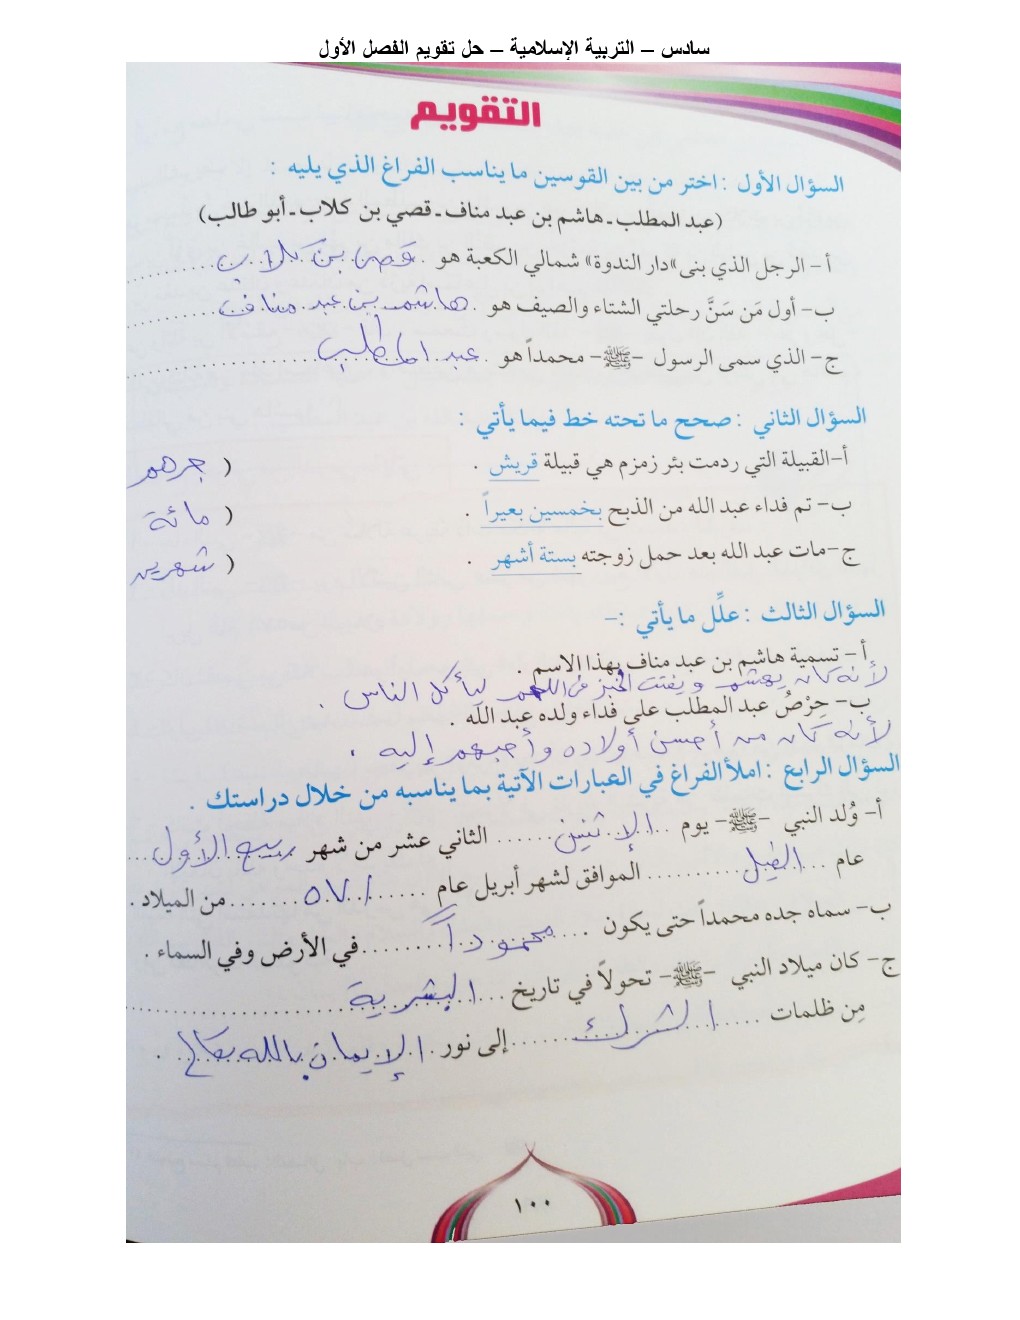 سادس – التربية الإسلامية – حل تقويم الفصل الأول
التقويم
السؤال الأول : اختر من بين القوسين ما يناسب الفراغ الذي يليه :
(عبد المطلب ـ هاشم بن عبد مناف ـ قصي بن كلاب ـ أبو طالب)
أ – الرجل الذي بنى «دار الندوة» شمالي الكعبة هو قصي بن كلاب
ب – أول مَن سَنَّ رحلتي الشتاء والصيف هو هاشم بن عبد مناف
ج – الذي سمى الرسول – ﷺ – محمداً هو عبد المطلب
السؤال الثاني : صحح ما تحته خط فيما يأتي :
أ–القبيلة التي ردمت بئر زمزم هي قبيلة قريش . ( جرهم
ب – تم فداء عبد الله من الذبح بخمسين بعيراً . ( مائة
ج –مات عبد الله بعد حمل زوجته بستة أشهر . ( شهرين
السؤال الثالث : علِّل ما يأتي :–
أ – تسمية هاشم بن عبد مناف بهذا الاسم .
لأنه كان يهشم ويفتت الخبز في اللحم ليأكل الناس .
ب – حِرْصُ عبد المطلب على فداء ولده عبد الله .
لأنه كان من أحسن أولاده وأحبهم إليه .
السؤال الرابع : املأ الفراغ في العبارات الآتية بما يناسبه من خلال دراستك .
أ – وُلد النبي – ﷺ – يوم الإثنين الثاني عشر من شهر ربيع الأول
عام الفيل الموافق لشهر أبريل عام ٥٧١ من الميلاد .
ب – سماه جده محمداً حتى يكون محموداً في الأرض وفي السماء .
ج – كان ميلاد النبي – ﷺ – تحولاً في تاريخ البشرية
مِن ظلمات الشرك إلى نور الإيمان بالله تعالى .
١٠٠